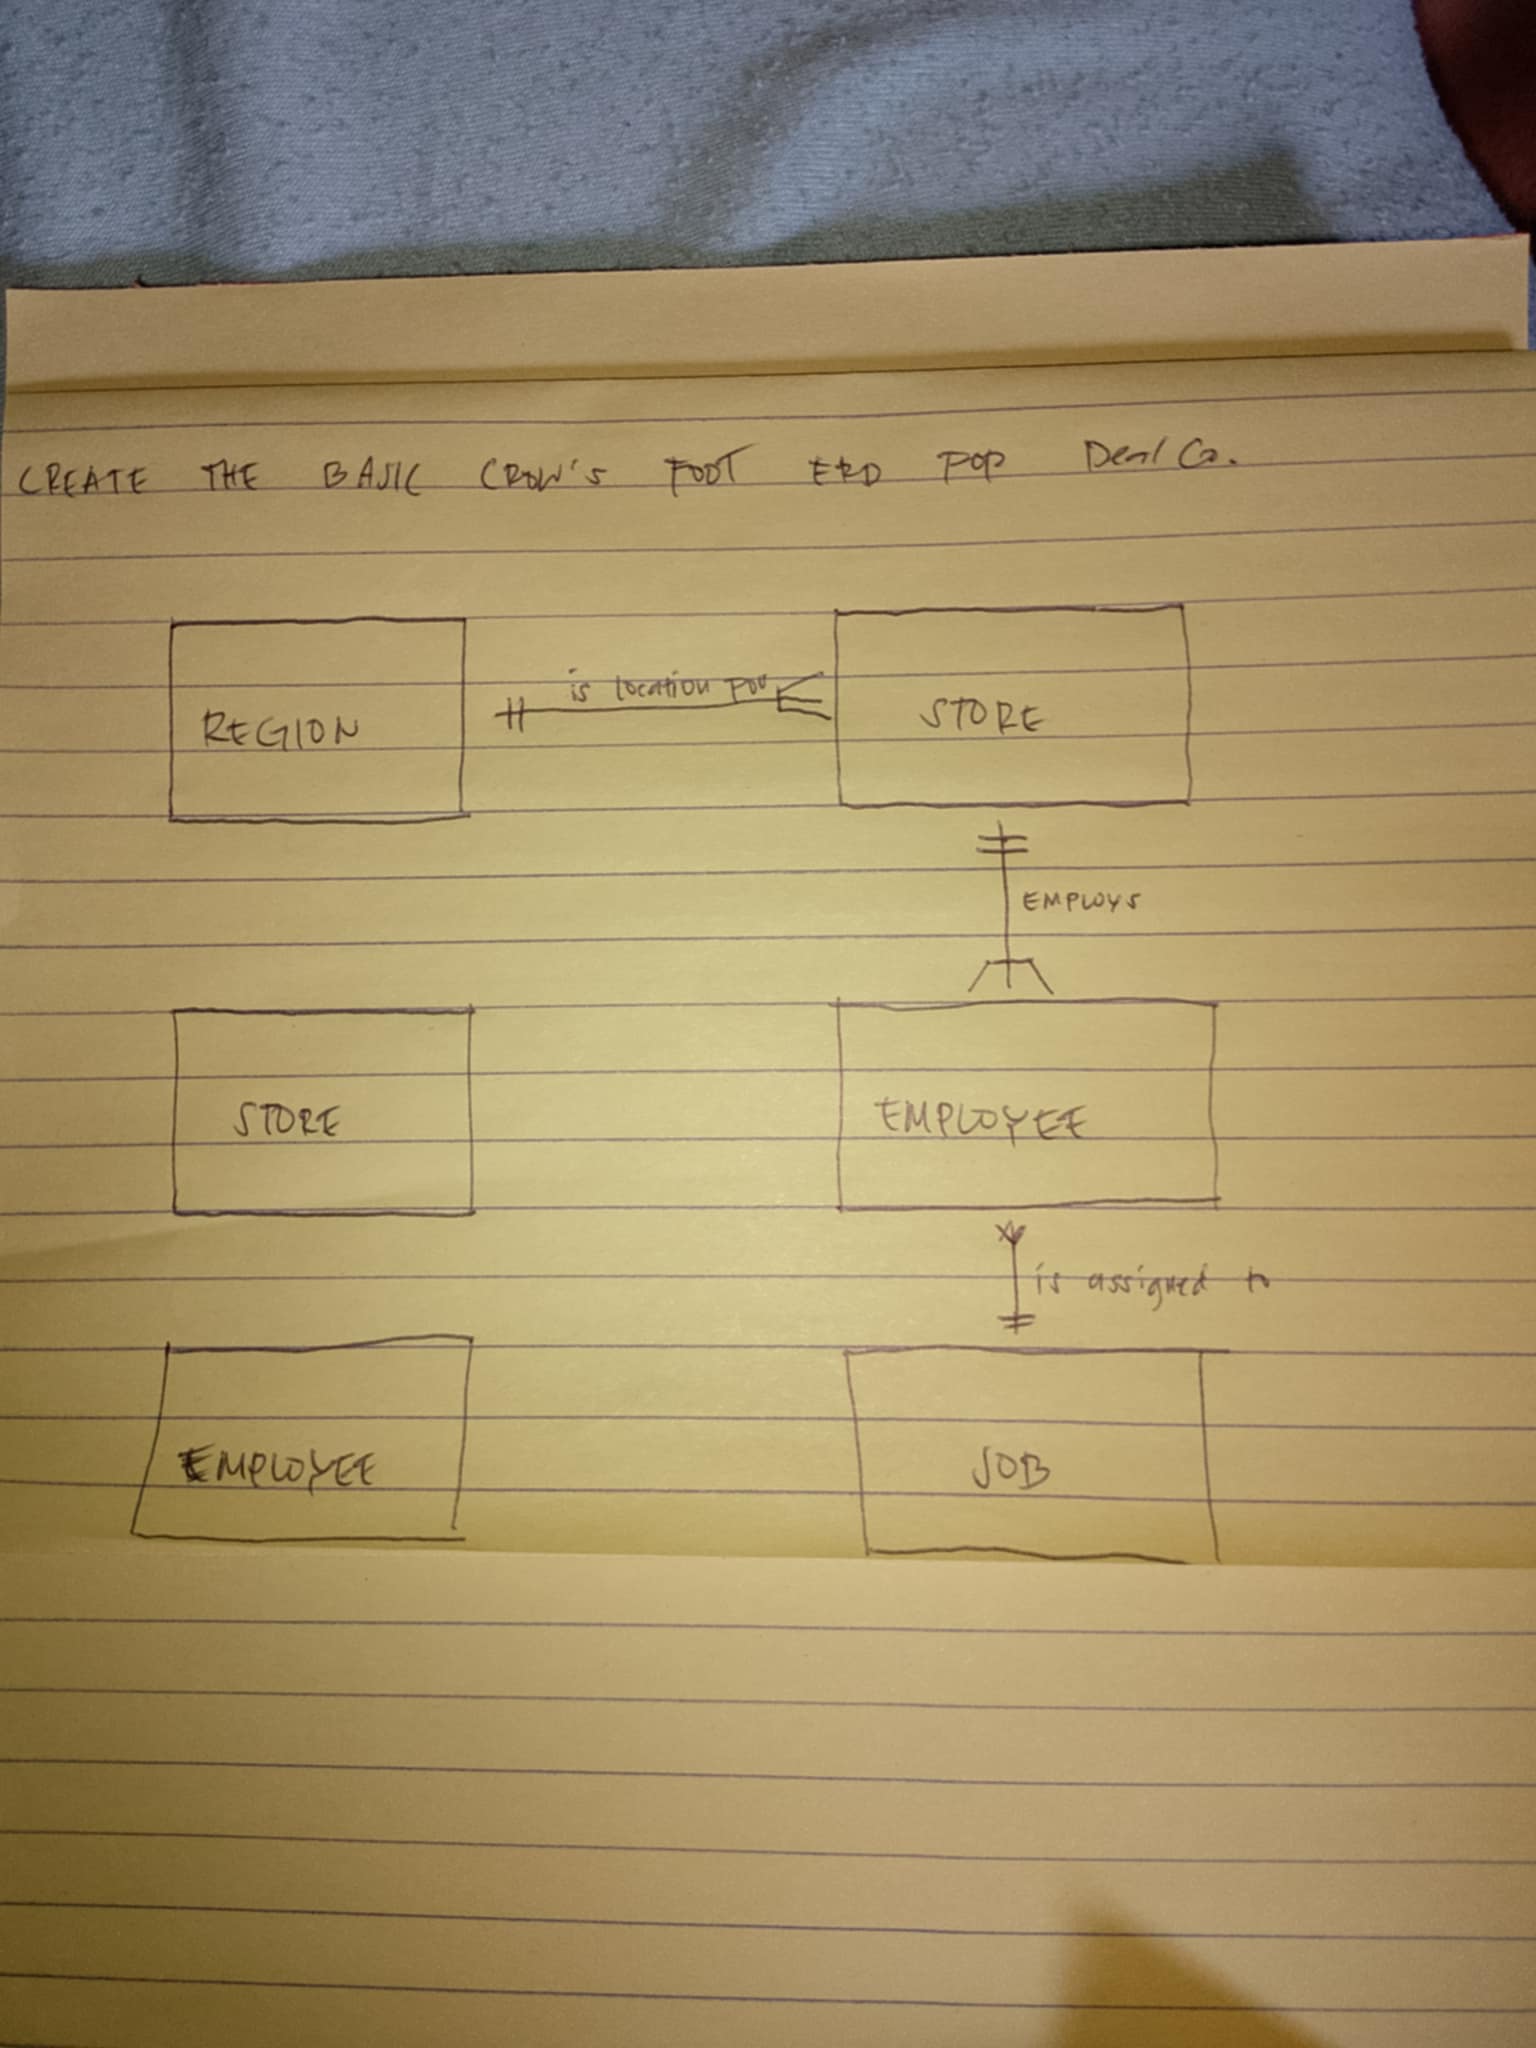 CREATE THE BASIC CROW'S FOOT ERD POP Deal Co.
REGION
is location por
STORE
EMPLOYS
STORE
EMPLOYEE
is assigned to
EMPLOYEE
JOB